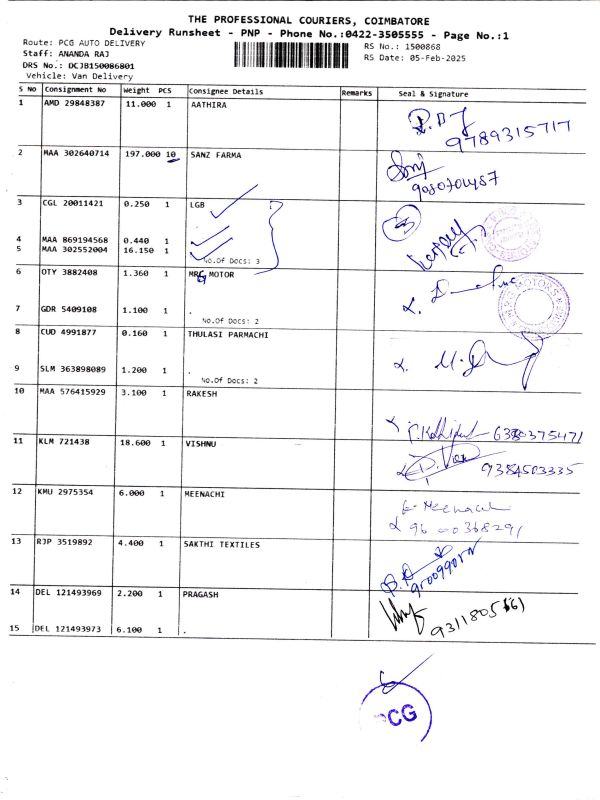 THE PROFESSIONAL COURIERS, COIMBATORE
Delivery Runsheet - PNP - Phone No.:0422-3505555 - Page No.:1
Route: PCG AUTO DELIVERY
RS No.: 1500868
Staff: ANANDA RAJ
RS Date: 05-Feb-2025
DRS No.: DCJB150086801
Vehicle: Van Delivery
S No Consignment No Weight PCS Consignee Details Remarks Seal & Signature
1 AMD 29848387 11.000 1 AATHIRA
9789315717
2 MAA 302640714 197.000 10 SANZ FARMA
3 CGL 20011421 0.250 1 LGB
4 MAA 869194568 0.440 1
5 MAA 302552004 16.150 1
No.Of Docs: 3
6 OTY 3882408 1.360 1 MRG MOTOR
7 GDR 5409108 1.100 1 .
No.Of Docs: 2
8 CUD 4991877 0.160 1 THULASI PARMACHI
9 SLM 363898089 1.200 1 .
No.Of Docs: 2
10 MAA 576415929 3.100 1 RAKESH
6380375471
11 KLM 721438 18.600 1 VISHNU
9384503335
12 KMU 2975354 6.000 1 MEENACHI
13 RJP 3519892 4.400 1 SAKTHI TEXTILES
14 DEL 121493969 2.200 1 PRAGASH
15 DEL 121493973 6.100 1 .
PCG